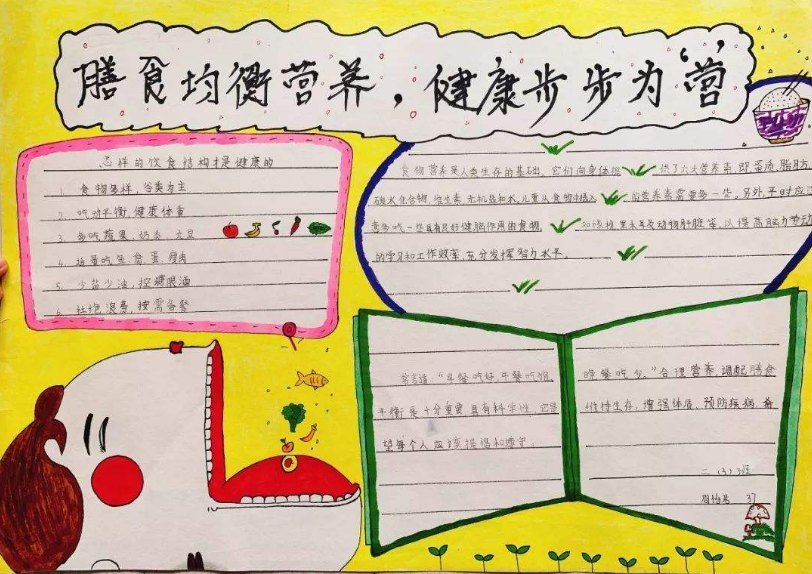 膳食均衡营养，健康步步为“营”
怎样的饮食结构才是健康的
1. 食物多样，谷类为主
2. 吃动平衡，健康体重
3. 多吃蔬果、奶类、大豆
4. 适量吃鱼、禽、蛋、瘦肉
5. 少盐少油，控糖限酒
6. 杜绝浪费，按需备餐
食物营养是人类生存的基础，它们向身体提供了六大营养素，即蛋白质、脂肪、
碳水化合物、维生素、无机盐和水，儿童从食物中摄入的营养素需要多一些。另外，平时应注
意多吃一些具有良好健脑作用的食物，
以提高脑力劳动
的学习和工作效率，充分发挥智力水平。
常言道：“早餐吃好，午餐吃饱，
晚餐吃少。”合理营养，调配膳食
平衡是十分重要，具有科学性，它是
维持生存、增强体质、预防疾病，希
望每个人应该提倡和遵守。
二（3）班
37